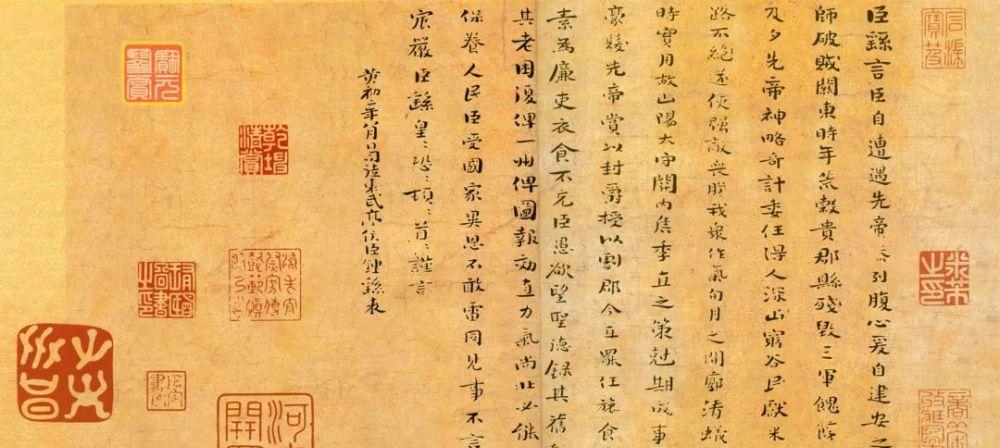 臣繇言臣自遭遇先帝忝列腹心爰自建安之
師破賊關東時年荒穀貴郡縣殘毀三軍餽饟
及夕先帝神略奇計委任得人深山窮谷民獻米
路不絕遂使強敵喪膽我衆作氣旬月之間廓清蟻
時實用故山陽太守關內侯季直之策剋期成事
豪髮先帝賞以封爵授以劇郡今直罷任旅食
素為廉吏衣食不充臣愚欲望聖德錄其舊
其老困復俾一州俾圖報効直力氣尚壯必能
保養人民臣受國家異恩不敢雷同見事不言
宸嚴臣繇皇〻恐〻頓〻首〻謹言
黃初二年八月日司徒東武亭侯臣鍾繇表